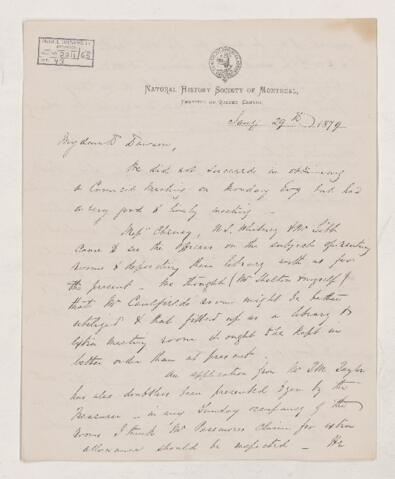 NATURAL HISTORY SOCIETY OF MONTREAL,
PROVINCE OF QUEBEC CANADA.
Jany 29th 1879
My dear Dr Dawson,
We did not succeed in obtaining
a Council Meeting on Monday Evg but had
a very good & timely meeting -
Messrs Cheney, N.S. Whitney & Mr
came to see the Officers on the subject of renting
rooms & depositing their library with us for
the present - We thought (Mr Shelton & myself)
that Mr Caulfield's room might be better
utilized & that fitted up as a library &
extra meeting room it ought to be kept in
better order than at present.
An application from Mr T.M. Taylor
has also doubtless been presented to you by the
Treasurer - in any Sunday occupancy of the
rooms I think Mr Passmore's Claim for extra
allowance should be respected - He